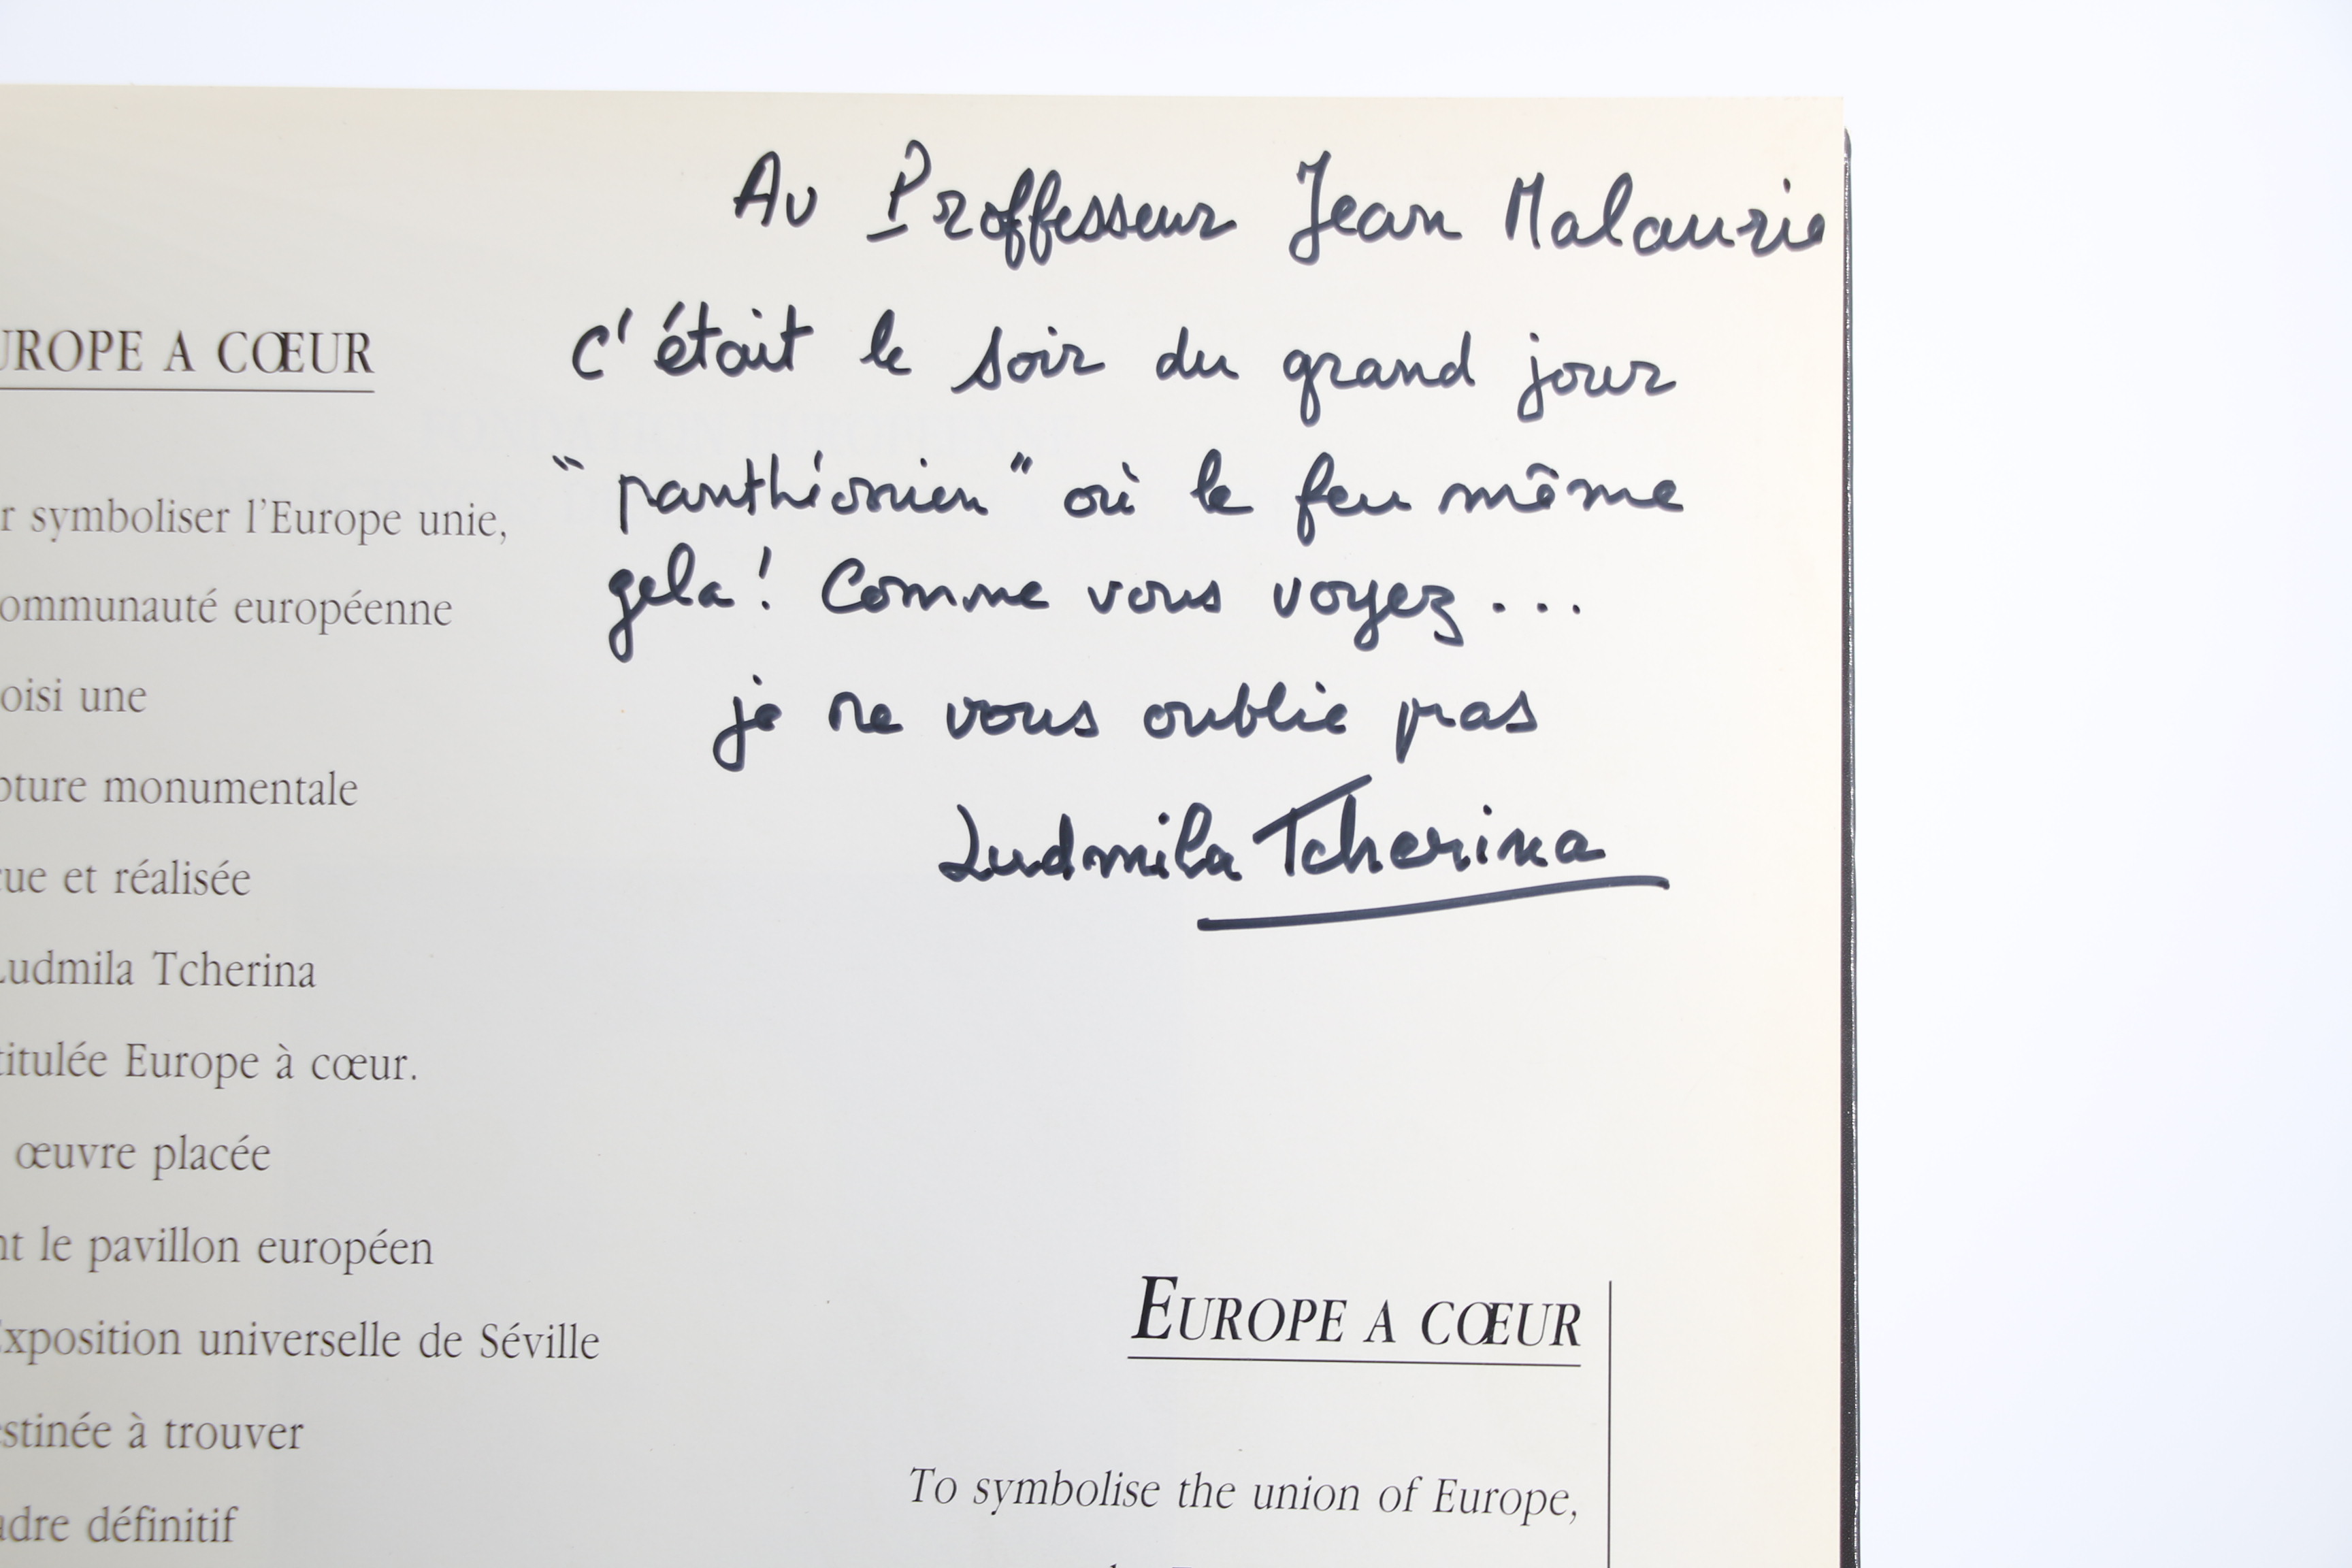 Au Proffesseur Jean Malaurie
c'était le soir du grand jour
"panthéonien" où le feu même
gela! Comme vous voyez...
je ne vous oublie pas
Ludmila Tcherina
UROPE A CŒUR
r symboliser l'Europe unie,
ommunauté européenne
oisi une
pture monumentale
ue et réalisée
Ludmila Tcherina
titulée Europe à cœur.
œuvre placée
nt le pavillon européen
Exposition universelle de Séville
estinée à trouver
adre définitif
EUROPE A CŒUR
To symbolise the union of Europe,